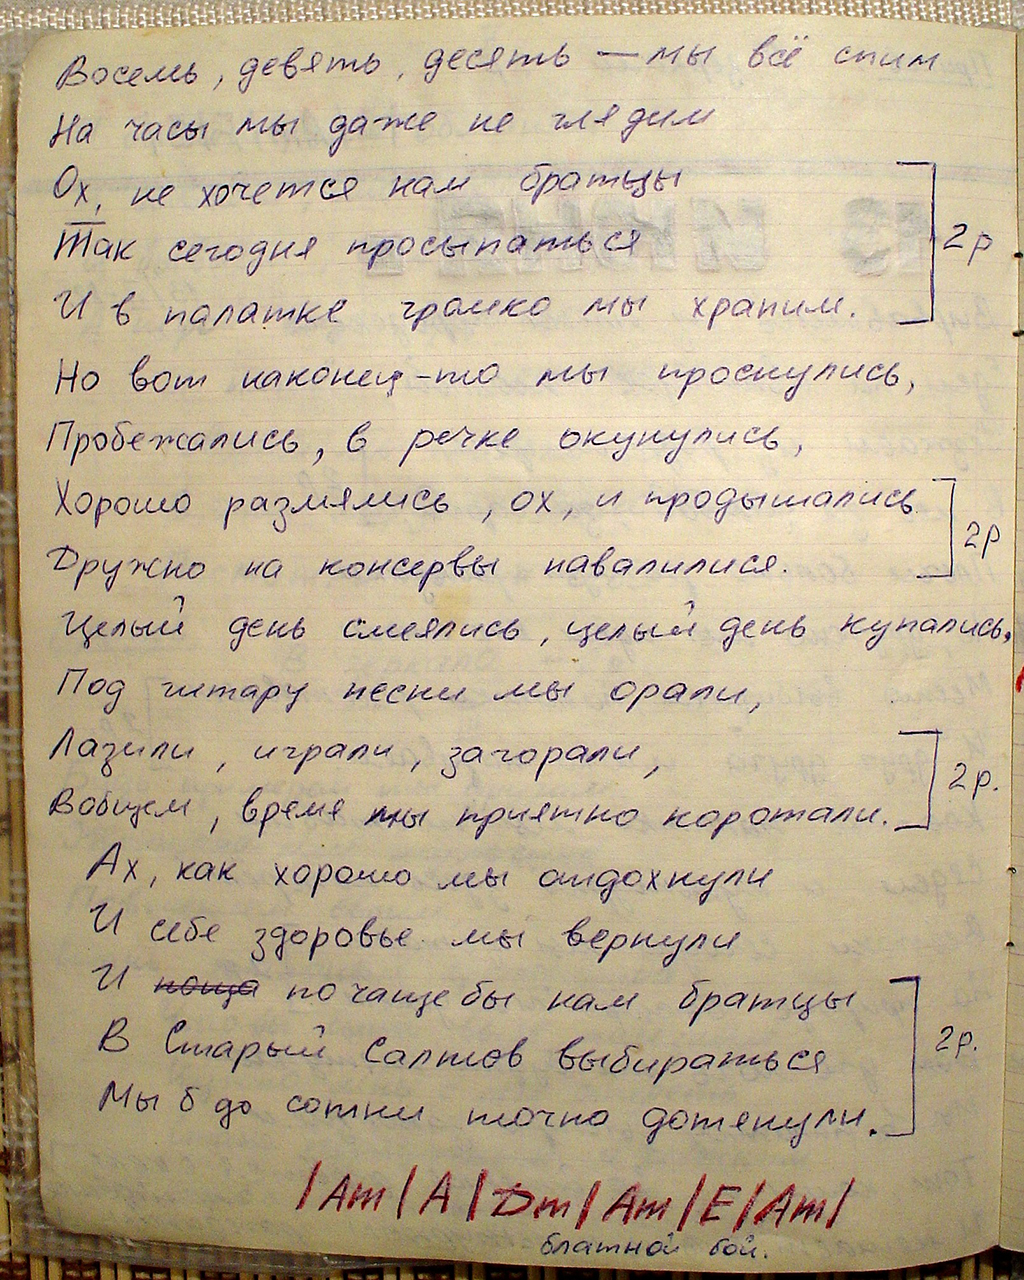 Восемь, девять, десять — мы всё спим
На часы мы даже не глядим
Ох, не хочется нам братцы
Так сегодня просыпаться
И в палатке громко мы храпим.
2р
Но вот наконец-то мы проснулись,
Пробежались, в речке окунулись,
Хорошо размялись, ох, и продышались
Дружно на консервы навалилися.
2р
Целый день смеялись, целый день купались,
Под гитару песни мы орали,
Лазили, играли, загорали,
Вобщем, время мы приятно коротали.
2р.
Ах, как хорошо мы отдохнули
И себе здоровье мы вернули
И поща почаще бы нам братцы
В Старый Салтов выбираться
Мы б до сотни точно дотянули.
2р.
|Am|A|Dm|Am|E|Am|
блатной бой.